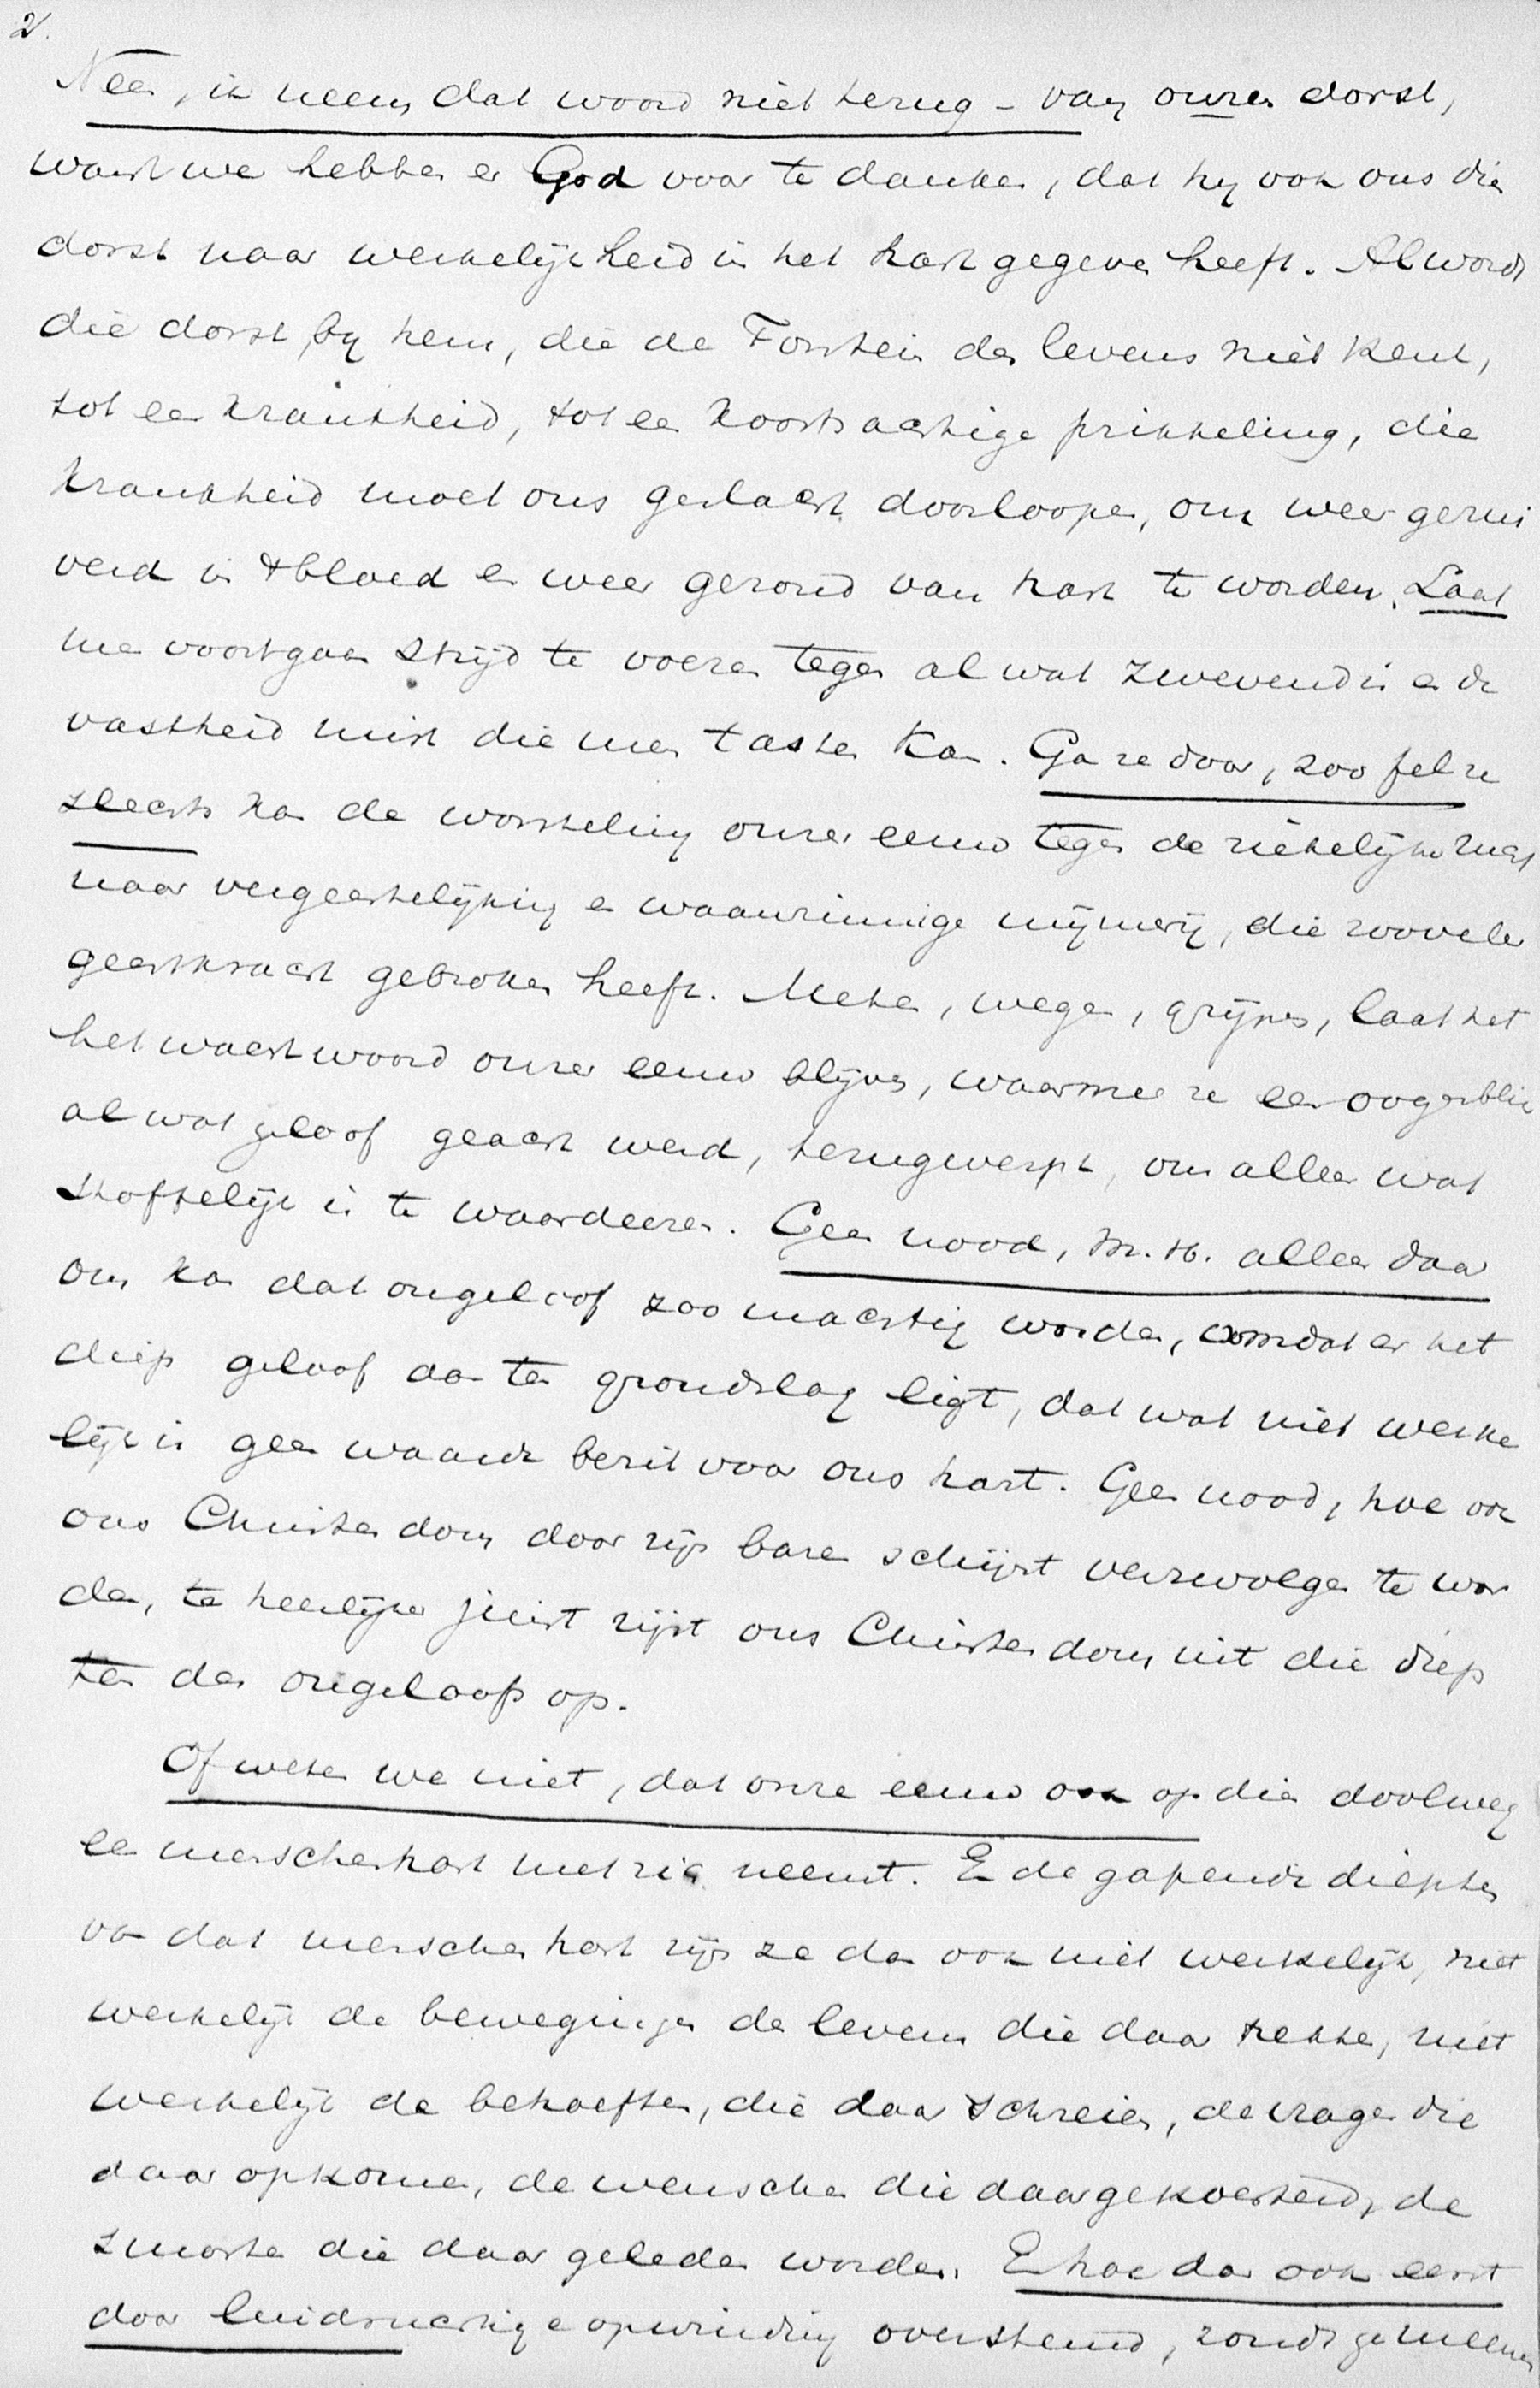 2/.
Neen, ik neem dat woord niet terug – van onzen dorst,
want we hebben er God voor te danken, dat hij ook ons dien
dorst naar werkelijkheid in het hart gegeven heeft. Al wordt
die dorst, bij hem, die de Fontein des levens niet kent,
tot een krankheid, tot een koortsachtige prikkeling, die
krankheid moet ons geslacht doorloopen, om weer gezui
verd in 't bloed en weer gezond van hart te worden. Laat
men voortgaan strijd te voeren tegen al wat zwevend is en de
vastheid mist die men tasten kan. Ga ze door, zoo fel ze
slechts kan de worsteling onzer eeuw tegen de ziekelijke zucht
naar vergeestelijking en waanzinnige mijmerij, die zooveler
geestkracht gebroken heeft. Meten, wegen, grijpen, laat het
het wachtwoord onzer eeuw blijven, waarmee ze een oogenblik
al wat geloof geacht werd, terugwerpt, om alleen wat
stoffelijk is te waardeeren. Geen nood, m. H. alleen daar
om kan dat ongeloof zoo machtig worden, omdat er het
diep geloof aan ten grondslag ligt, dat wat niet werke
lijk is geen waarde bezit voor ons hart. Geen nood, hoe ook
ons Christendom door zijn baren schijnt verzwolgen te wor
den, te heerlijker juist rijst ons Christendom uit die diep
ten des ongeloofs op.
Of weten we niet, dat onze eeuw ook op dien doolweg
een menschenhart met zich neemt. En de gapende diepten
van dat menschenhart zijn ze dan ook niet werkelijk, niet
werkelijk de bewegingen des levens die daar trekken, niet
werkelijk de behoeften, die daar schreien, de vragen die
daar opkomen, de wenschen die daar gekoesterd, de
smarten die daar geleden worden. En hoe dan ook eerst
door luidruchtige opwinding overstemd, zoudt ge meenen